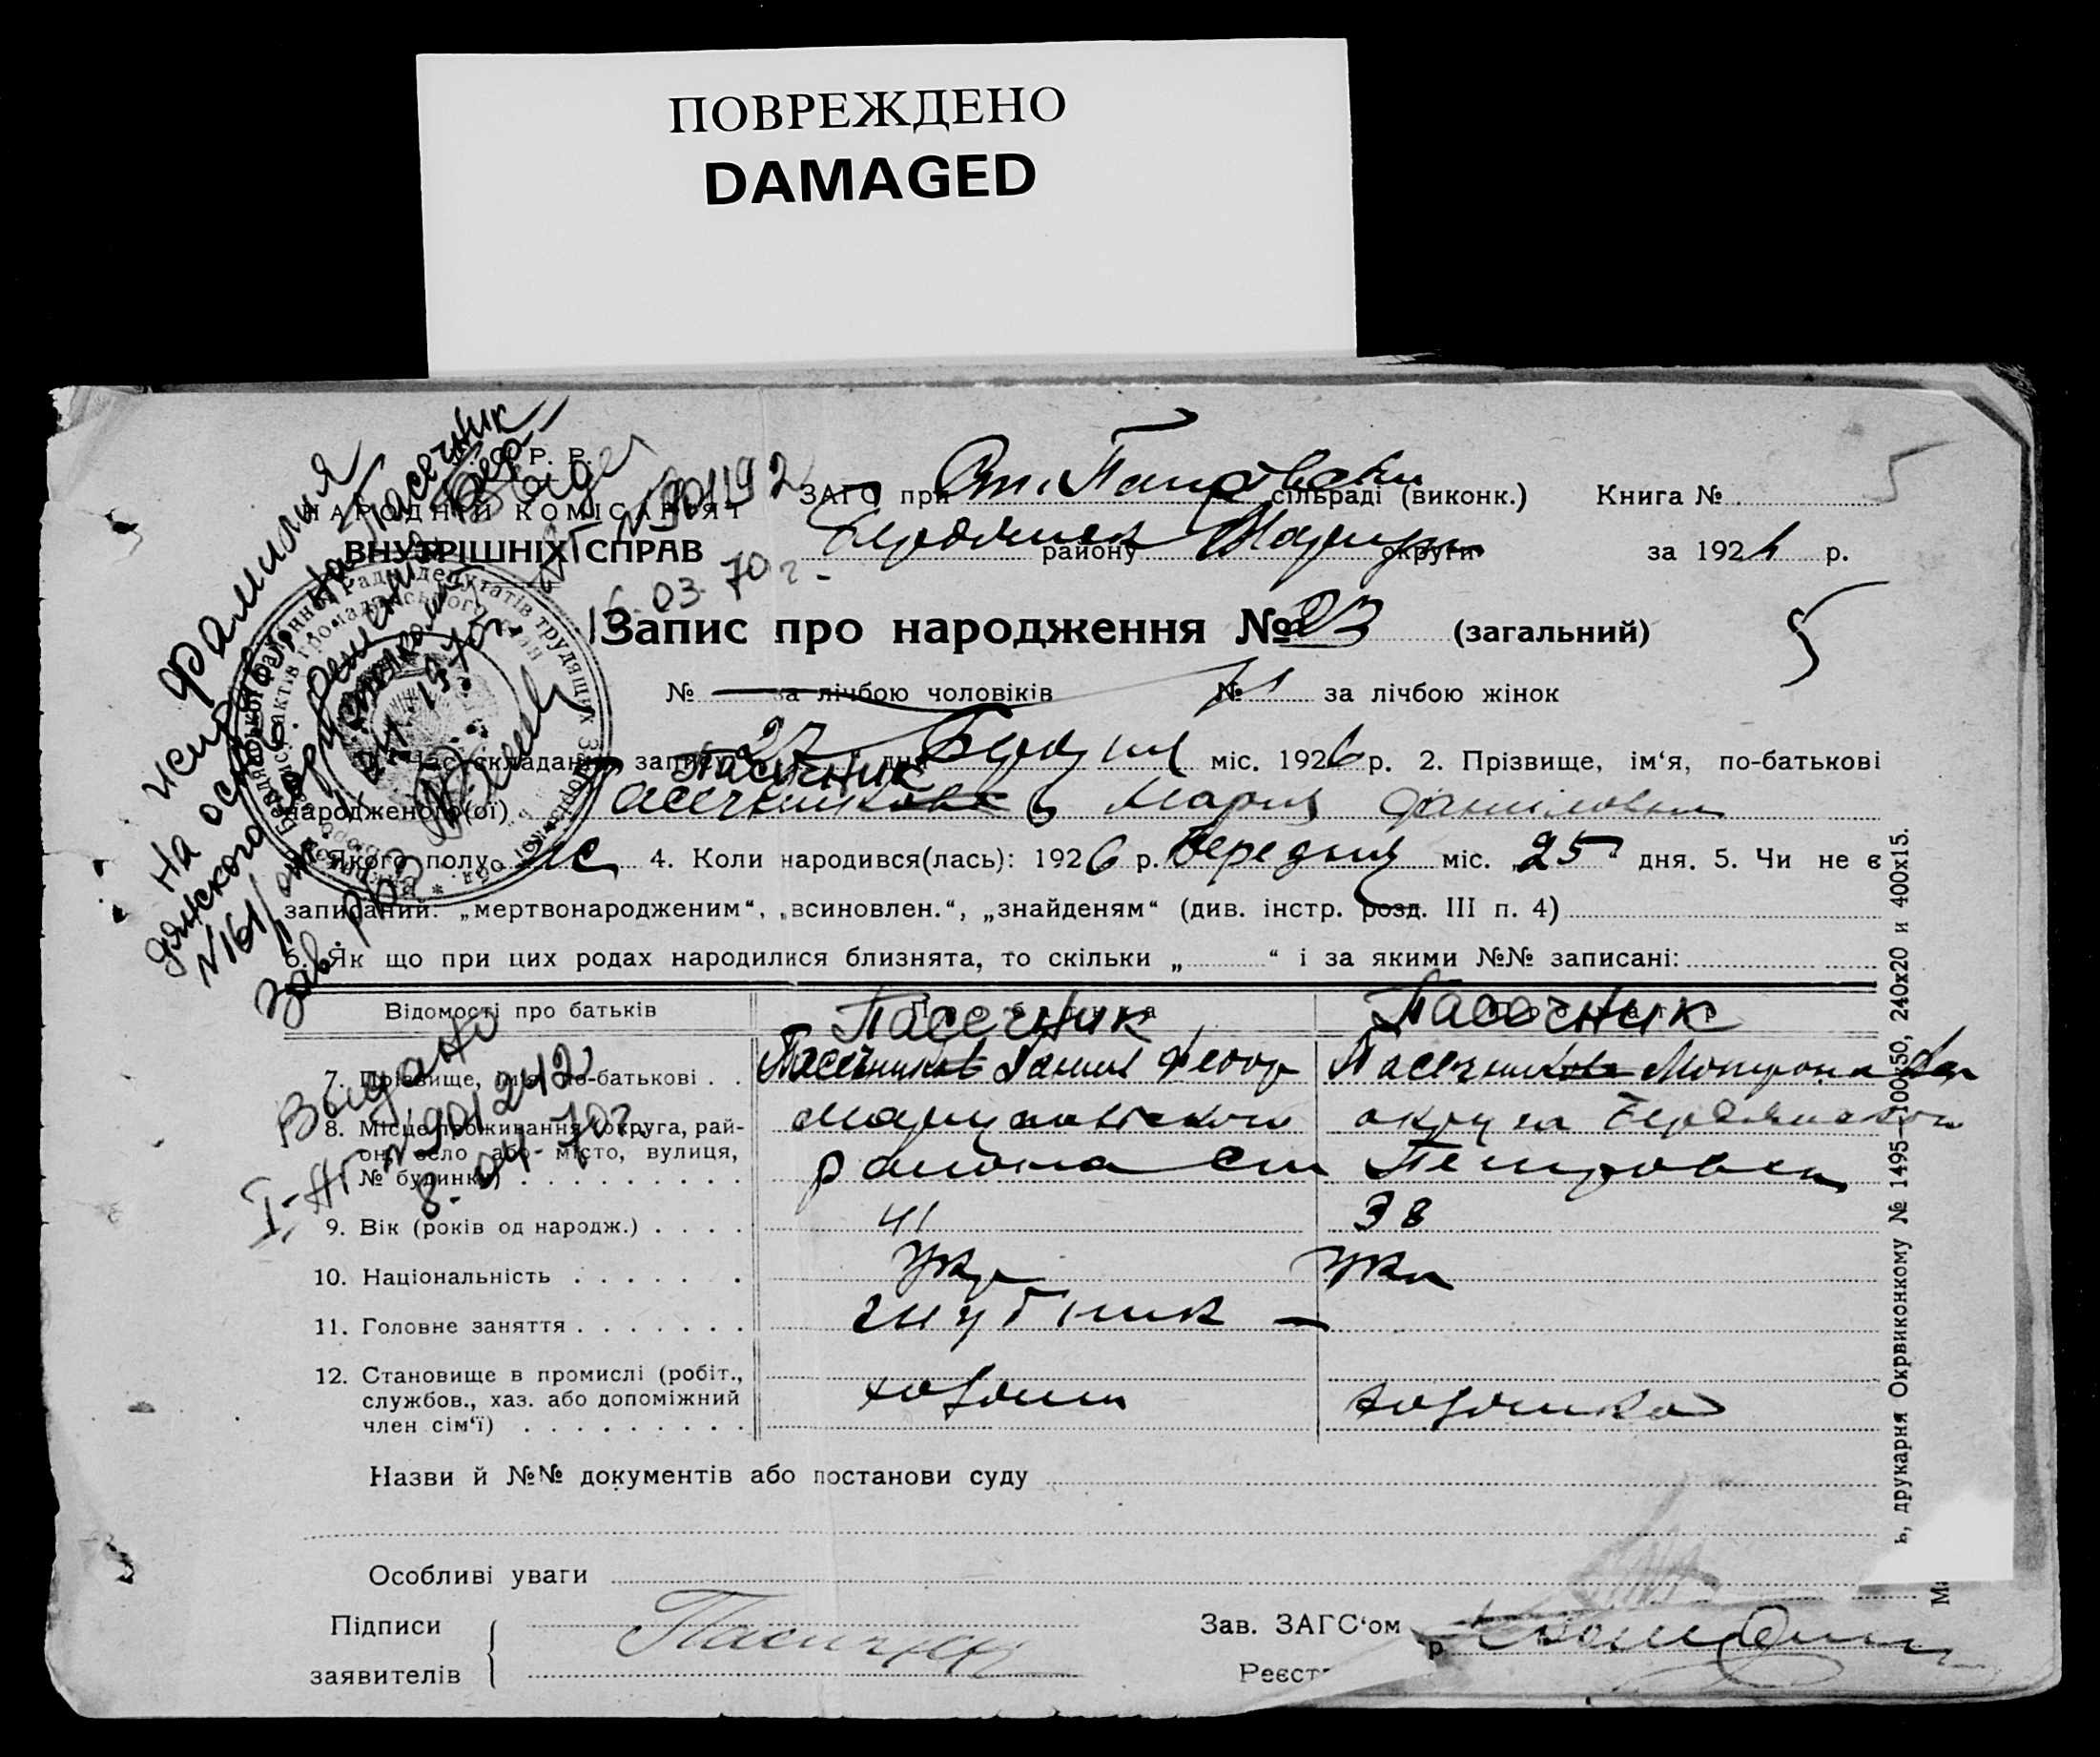 ПОВРЕЖДЕНО
DAMAGED
Р. Р.
НАРОДНІЙ КОМІСАРІЯТ
ВНУТРІШНІХ СПРАВ
ЗАГС при Петровки сільраді (виконк.) Книга № 5
Бердянск району Мариуп округи за 1926 р.
фамилия
исправлена
на Пасечник
на основ. решения
дянского горисполкома
№161/
24.4.1970г.
Зав.
№ 901192
16.03.70г.
Запис про народження № 23 (загальний)
5
№ за лічбою чоловіків № за лічбою жінок
Час складання запису 27 дня Березня міс. 1926 р. 2. Прізвище, ім‘я, по-батькові
Пасечник
народженого(ої) Пасечникова Мария Даниловна
Якого полу ж 4. Коли народився(лась): 1926 р. Березня міс. 25 дня. 5. Чи не є
записаний: „мертвонародженим“, „всиновлен.“, „знайденям“ (див. інстр. розд. III п. 4)
6. Як що при цих родах народилися близнята, то скільки „ “ і за якими №№ записані:
Відомості про батьків Пасечник Пасечник
7. Прізвище, ім‘я по-батькові Пасечников Данил Федор Пасечникова Мотрона
8. Місце проживання (округа, рай- Мариупольского округа Бердянского
он, село або місто, вулиця, района Петровка
№ будинку)
9. Вік (років од народж.) 41 38
10. Національність Укр Укр
11. Головне заняття —
12. Становище в промислі (робіт.,
службов., хаз. або допоміжний хозяин хозяйка
член сім‘ї)
Выдано
I-АГ №901242
8.04.70г.
Назви й №№ документів або постанови суду
Особливі уваги
Підписи
заявителів
Зав. ЗАГС‘ом
Реєст
р.
ь, друкарня Окрвиконкому № 1495—100х50, 240х20 и 400х15.